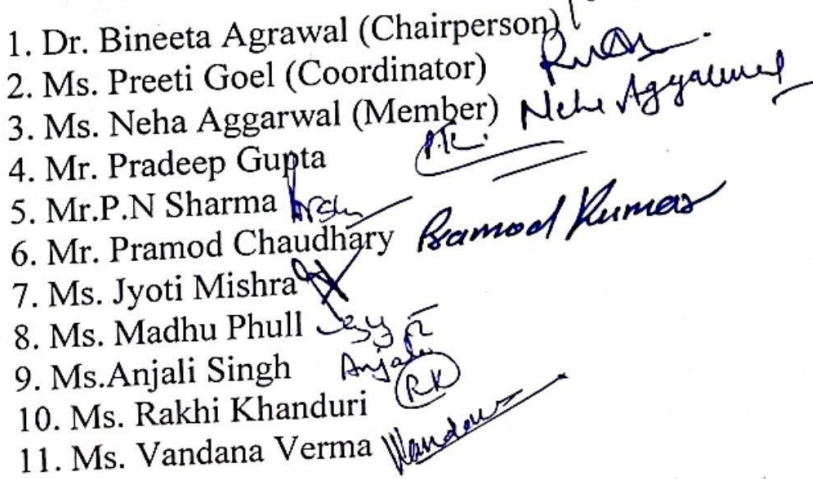 1. Dr. Bineeta Agrawal (Chairperson)
2. Ms. Preeti Goel (Coordinator)
3. Ms. Neha Aggarwal (Member) Neha Aggarwal
4. Mr. Pradeep Gupta
5. Mr.P.N Sharma
6. Mr. Pramod Chaudhary Pramod Kumar
7. Ms. Jyoti Mishra
8. Ms. Madhu Phull
9. Ms.Anjali Singh Anjali
10. Ms. Rakhi Khanduri RK
11. Ms. Vandana Verma Vandana